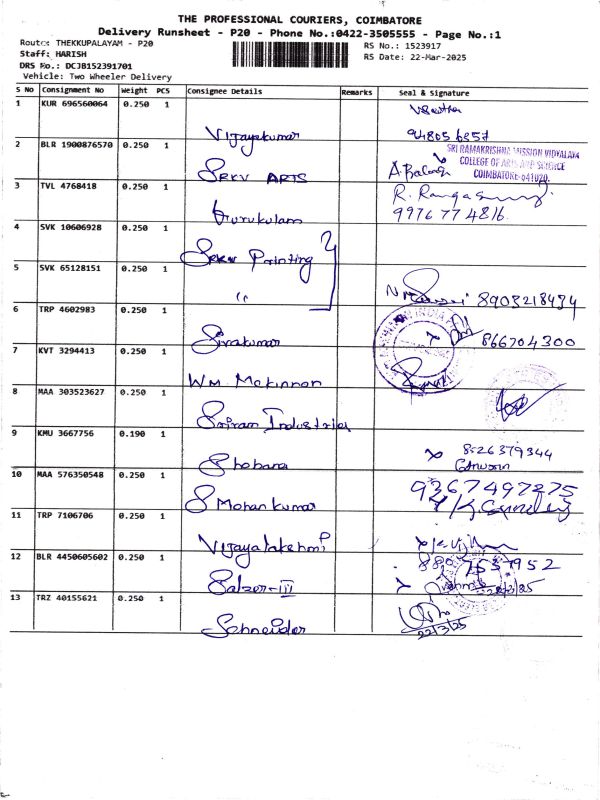 THE PROFESSIONAL COURIERS, COIMBATORE
Delivery Runsheet - P20 - Phone No.:0422-3505555 - Page No.:1
Route: THEKKUPALAYAM - P20
RS No.: 1523917
Staff: HARISH
RS Date: 22-Mar-2025
DRS No.: DCJB152391701
Vehicle: Two Wheeler Delivery
S No Consignment No Weight PCS Consignee Details Remarks Seal & Signature
1 KUR 696560064 0.250 1
Vijayakumar 948056857
2 BLR 1900876570 0.250 1
SRI RAMAKRISHNA MISSION VIDYALAYA
COLLEGE OF ARTS AND SCIENCE
COIMBATORE-641020.
SRKV ARTS A.Balaji
3 TVL 4768418 0.250 1
Gurukulam 9976 77 4816.
4 SVK 10606928 0.250 1
SRKV Printing
5 SVK 65128151 0.250 1
" 8903218434
6 TRP 4602983 0.250 1
Sivakumar 866704300
7 KVT 3294413 0.250 1
W.M. Mekinon
8 MAA 303523627 0.250 1
Sriram Industries
9 KMU 3667756 0.190 1
Shobana 8526379344
10 MAA 576350548 0.250 1
S Mohan kumar 9367497275
11 TRP 7106706 0.250 1
Vijayalakshmi
12 BLR 4450605602 0.250 1
8807537952
Salzer-III 22/3/25
13 TRZ 40155621 0.250 1
Schneider 22/3/25